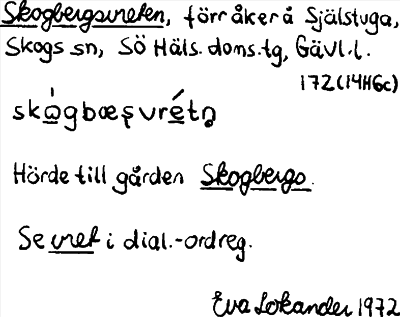 Skogbergsvreten, förr åker å Själstuga,
Skogs sn, SÖ Häls. doms.tg, Gävl.l.
172(14H6c)
skω̇́gbœşvrét
Hörde till gården Skogbergs.
Se vret i dial.-ordreg.
Eva Lokander 1972